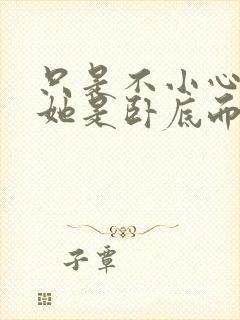 只是不小心
她是卧底而
子覃